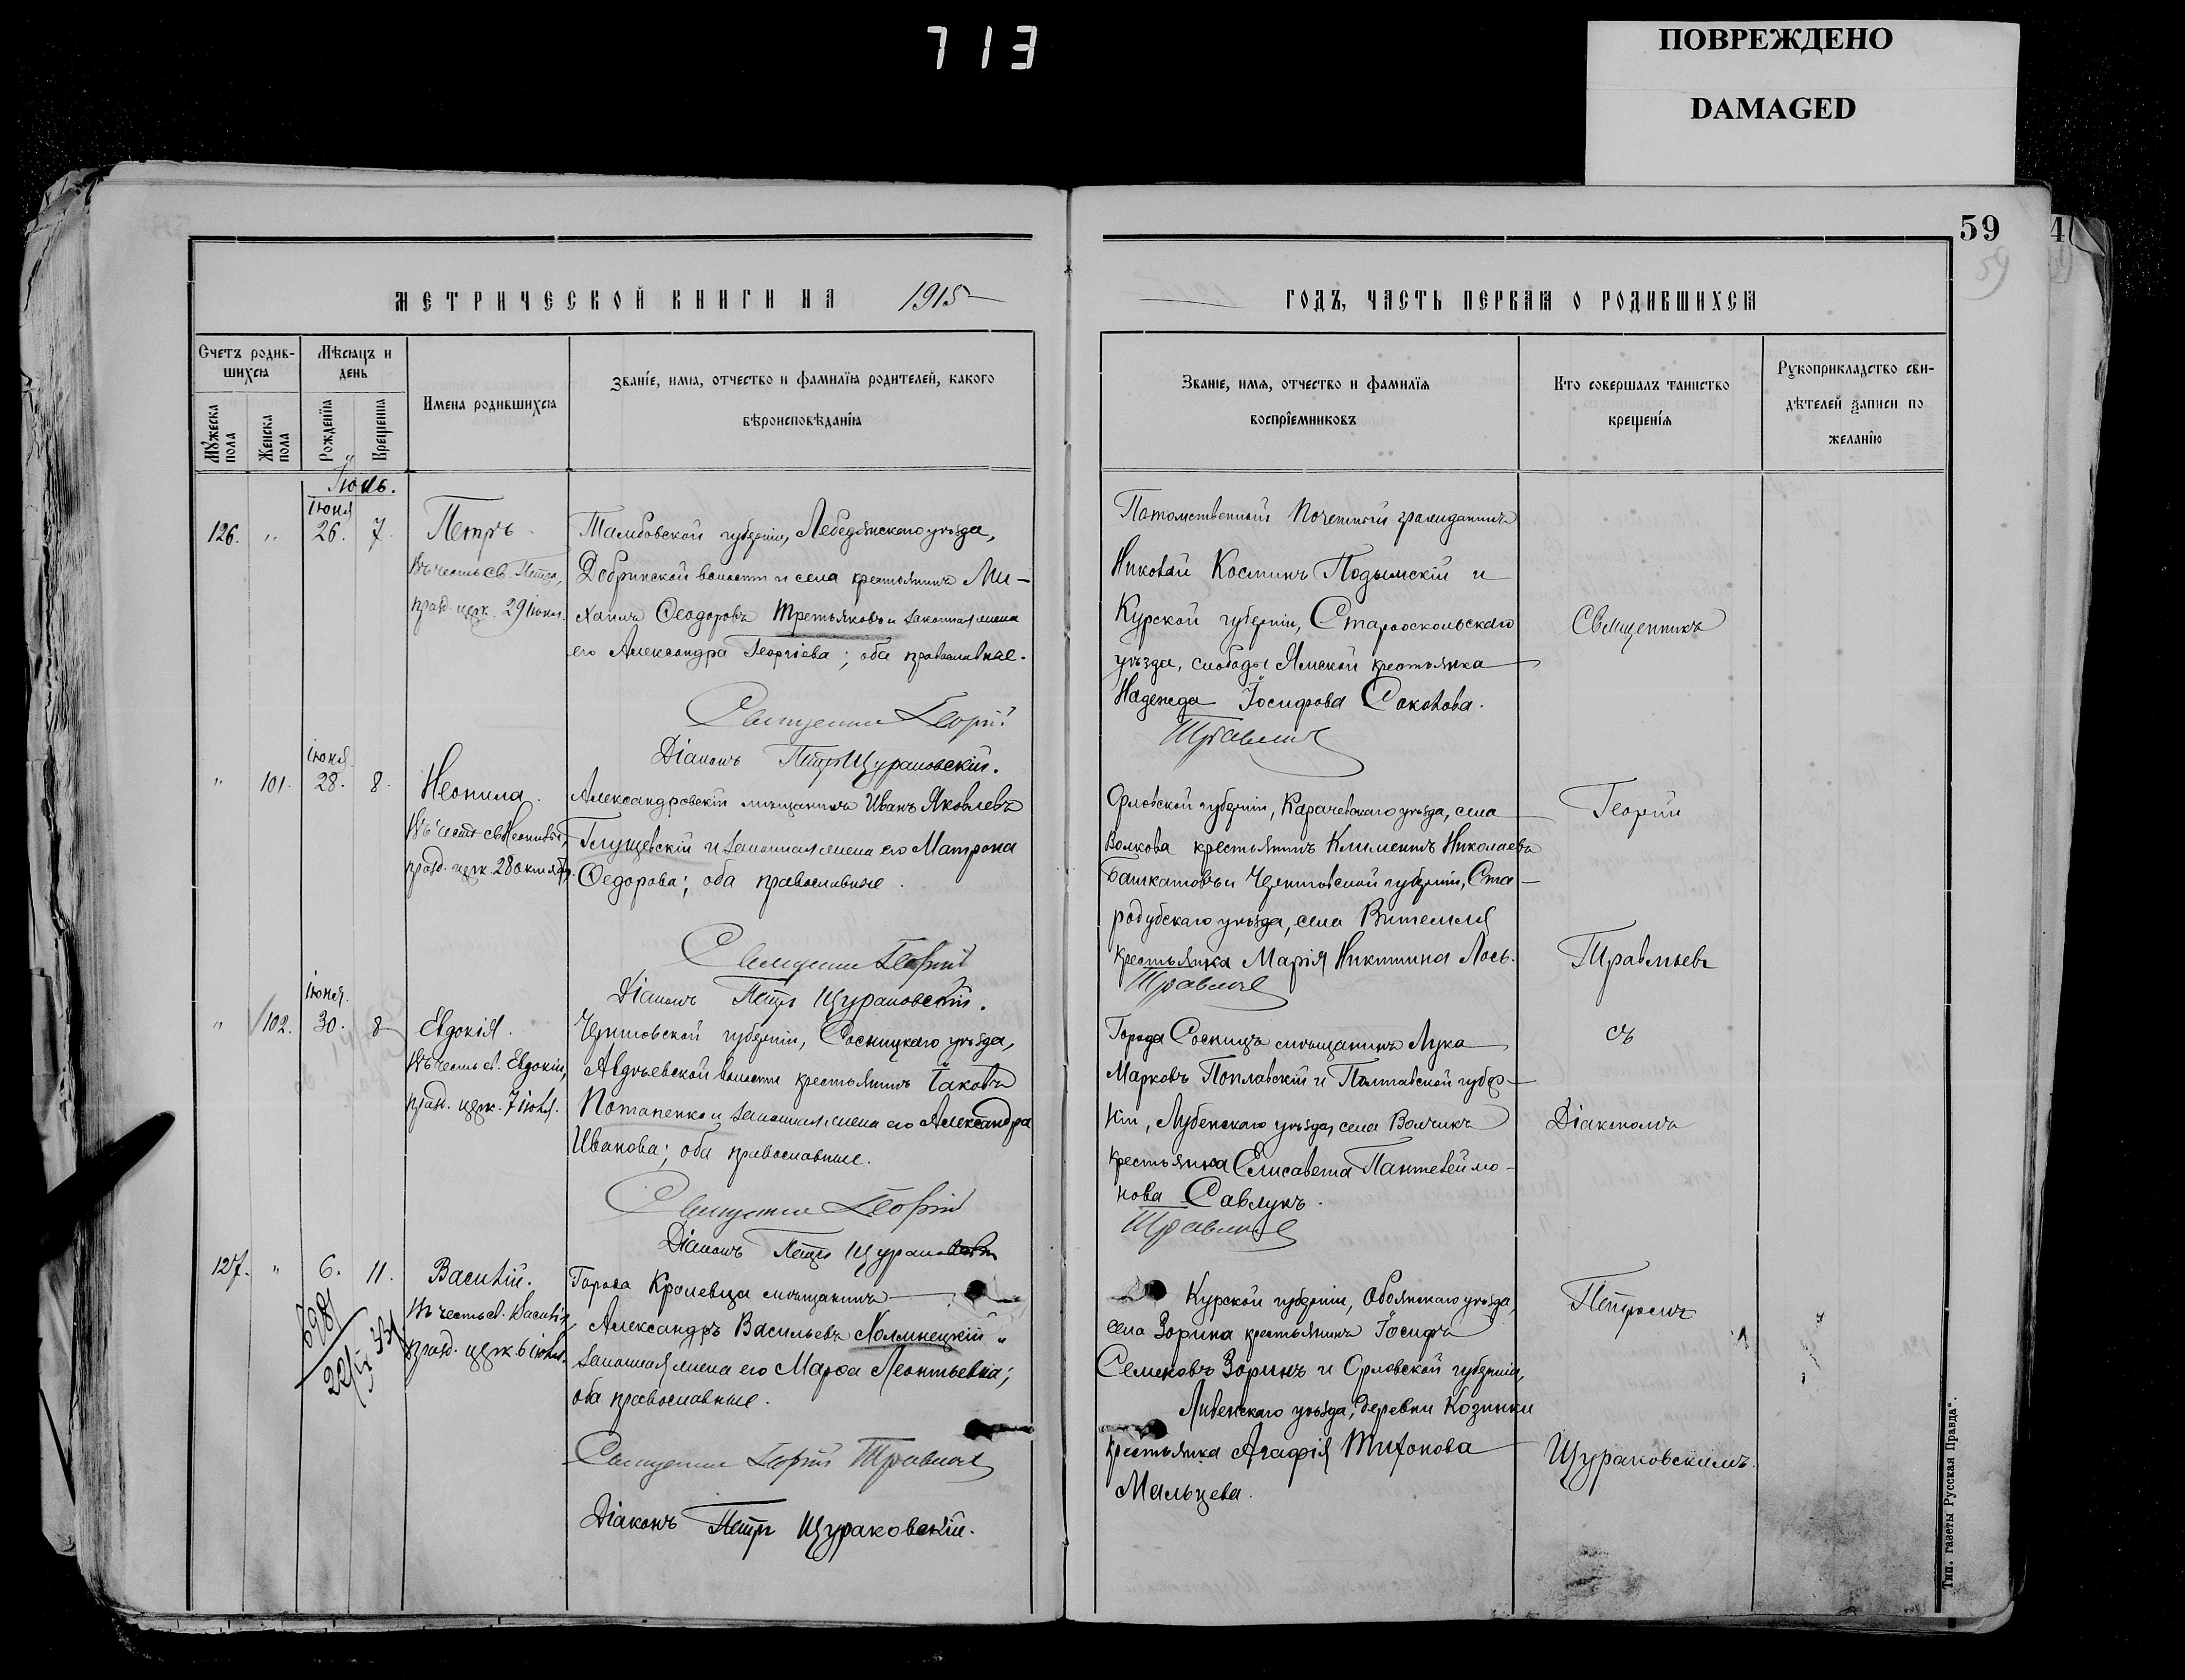 713
ПОВРЕЖДЕНО
DAMAGED
59
4
МЕТРИЧЕСКОЙ КНИГИ НА 1915
ГОДЪ, ЧАСТЬ ПЕРВАЯ О РОДИВШИХСЯ
Счетъ родив-
шихся
Мужеска
пола
Женска
пола
Мѣсяцъ и
день
Рожденїя
Крещенїя
Имена родившихся
Званїе, имя, отчество и фамилїя родителей, какого
вѣроисповѣданїя
Званїе, имя, отчество и фамилїя
воспрїемниковъ
Кто совершалъ таинство
крещенїя
Рукоприкладство сви-
дѣтелей записи по
желанїю
Іюль.
Іюня
126. " 26. 7. Петръ
Въ честь св. Петра,
празд. церк. 29 Іюня.
Тамбовской губерніи, Лебедянскаго уѣзда,
Добринской волости и села крестьянинъ Ми-
хаилъ Ѳеодоровъ Третьяковъ и законная жена
его Александра Георгіева; оба православные.
Священникъ Георгій
Діаконъ Петръ Щураковскій.
Потомственный Почетный гражданинъ
Николай Космичъ Подымскій и
Курской губерніи, Старооскольскаго
уѣзда, слободы Ямской крестьянка
Надежда Іосифова Соколова.
Травлѣевъ
Священникъ
Іюня.
" 101. 28. 8. Неонила.
Въ честь св. Неонилы,
празд. церк. 28 октября.
Александровскій мѣщанинъ Иванъ Яковлевъ
Глущевскій и законная жена его Матрона
Ѳедорова; оба православные.
Священникъ Георгій
Діаконъ Петръ Щураковскій.
Орловской губерніи, Карачевскаго уѣзда, села
Волкова крестьянинъ Климентъ Николаевъ
Башкатовъ и Черниговской губерніи, Ста-
родубскаго уѣзда, села Витемля
крестьянка Марія Никитина Лось.
Травлѣевъ
Георгій
Травлѣевъ
Іюня.
" 102. 30. 8 Евдокія.
Въ честь св. Евдокіи,
празд. церк. 7 іюля.
Черниговской губерніи, Сосницкаго уѣзда,
Авдѣевской волости крестьянинъ Іаковъ
Потапенко и законная жена его Александра
Иванова; оба православные.
Священникъ Георгій
Діаконъ Петръ Щураковскій
Города Сосницъ мѣщанинъ Лука
Марковъ Поплавскій и Полтавской губер-
ніи, Лубенскаго уѣзда, села Волчикъ
крестьянка Елисавета Пантелеймо-
нова Савлукъ.
Травлѣевъ
съ
Діакономъ
127. " 6. 11. Василій.
Въ честь св. Василія,
празд. церк. 6 іюля.
Города Кролевца мѣщанинъ
Александръ Васильевъ Холминецкій и
законная жена его Марѳа Леонтьевна;
оба православные.
Священникъ Георгій Травлѣевъ
Діаконъ Петръ Щураковскій.
Курской губерніи, Обоянскаго уѣзда,
села Зорина крестьянинъ Іосифъ
Семеновъ Зоринъ и Орловской губерніи,
Ливенскаго уѣзда, деревни Козинки
крестьянка Агафія Тихонова
Мальцева.
Петромъ
Щураковскимъ.
Тип. газеты Русская Правда".